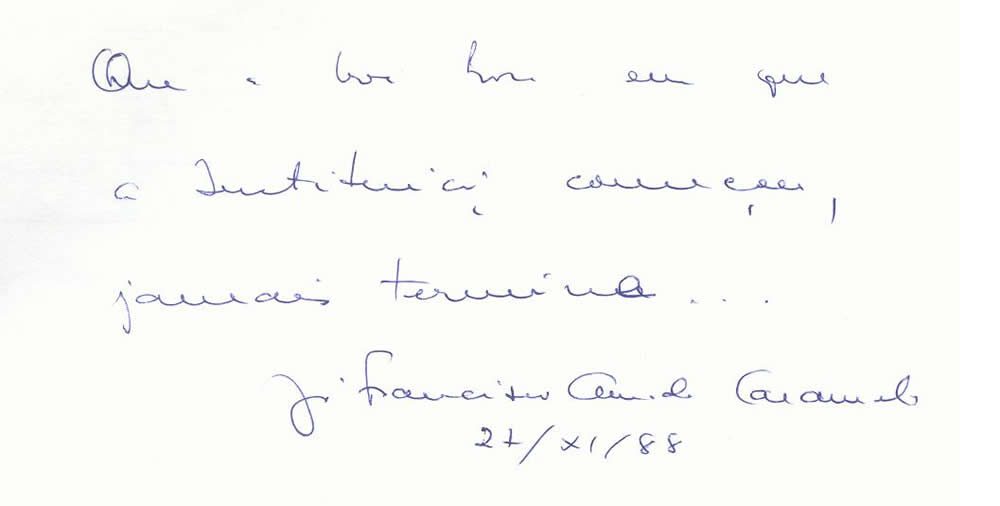 Que a boa hora em que
a Instituição começou,
jamais termine...
J. Francisco Caramelo
27/XI/88